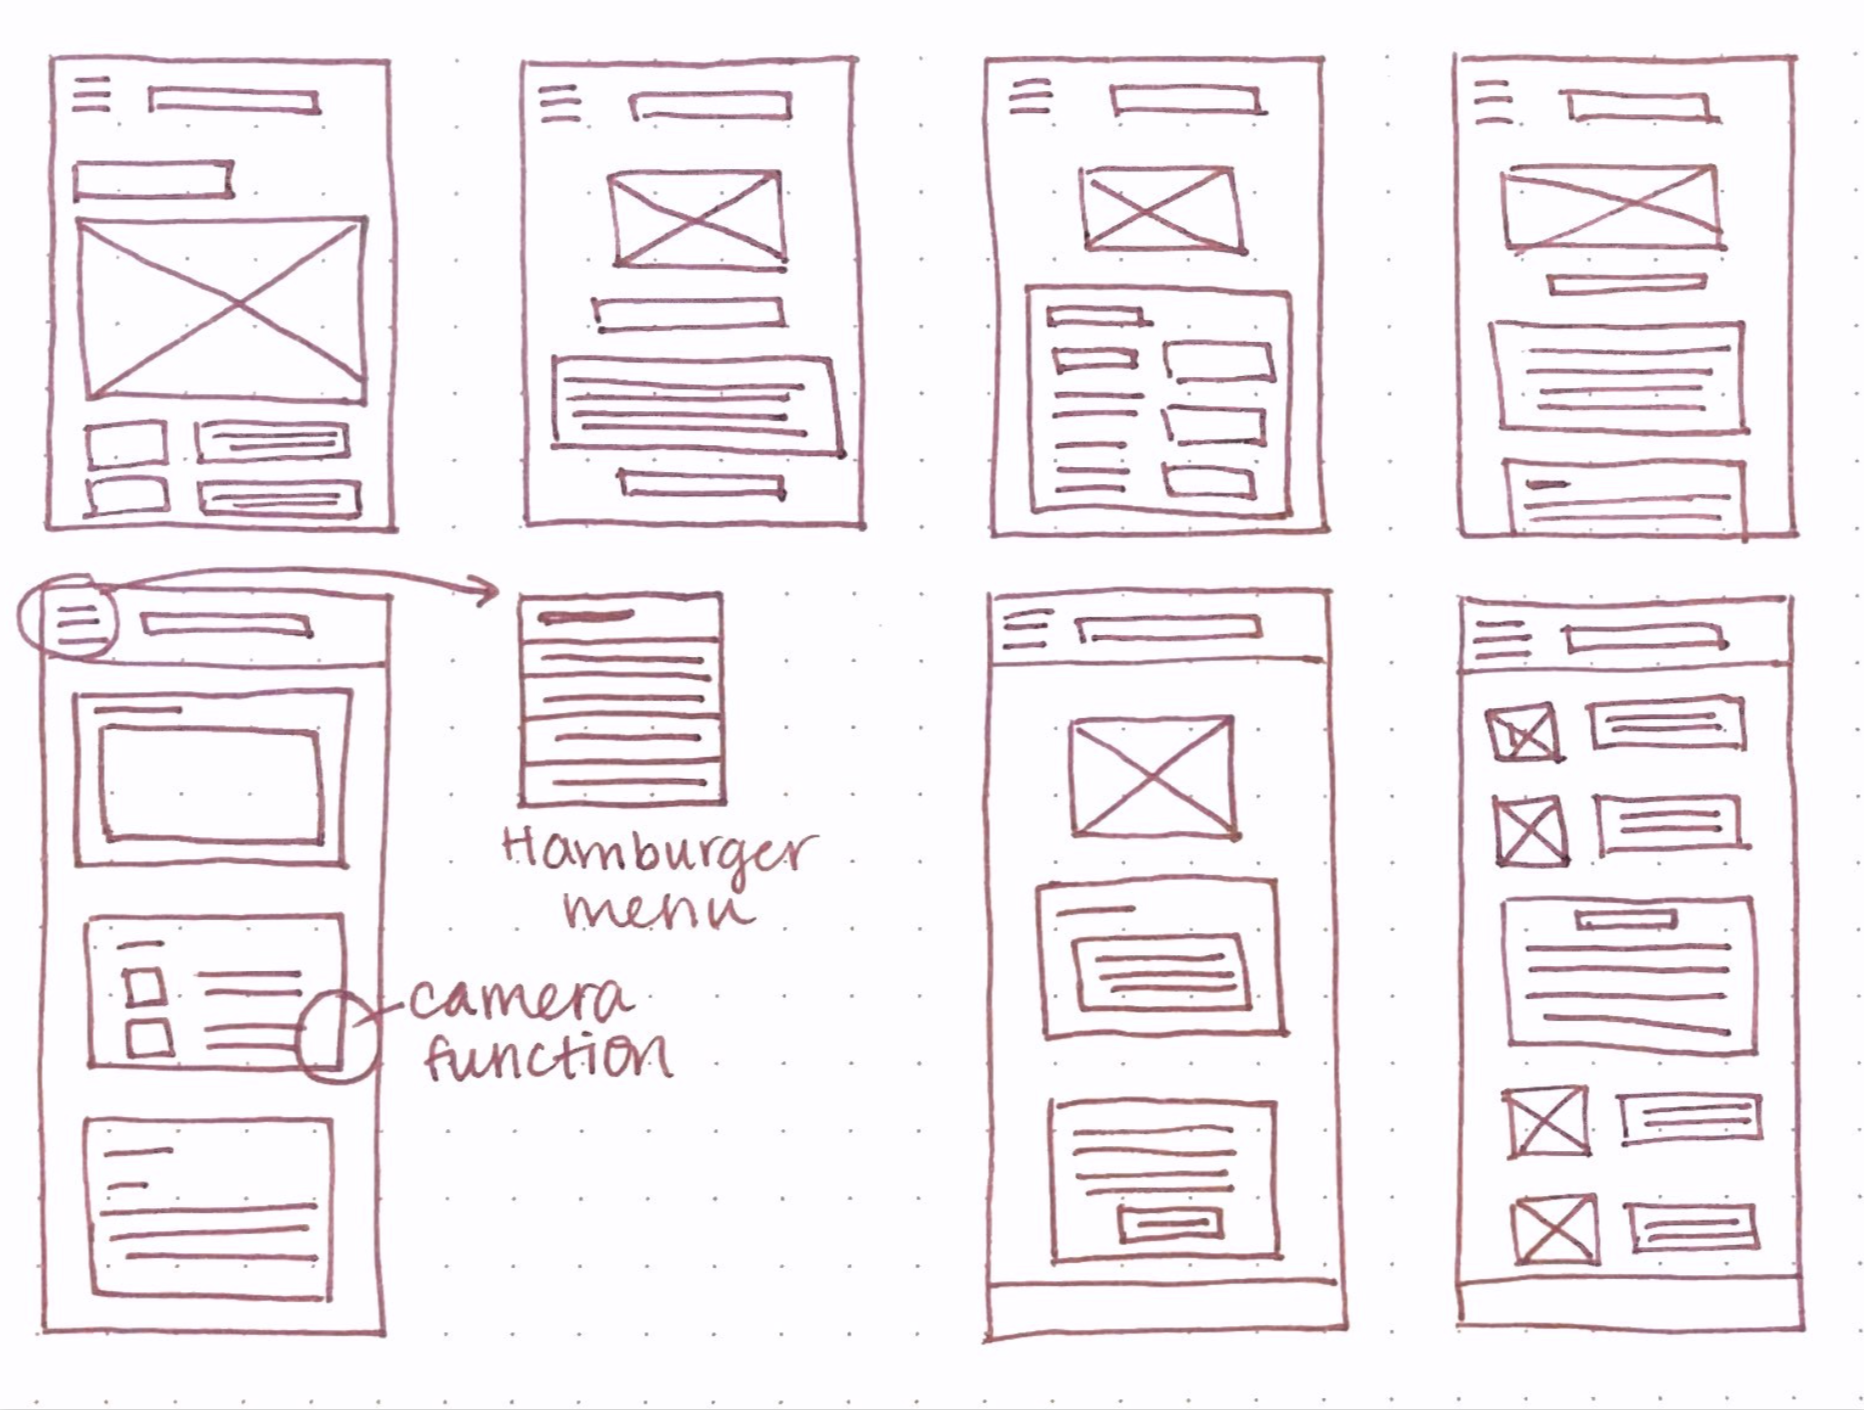 Hamburger
menu
camera
function